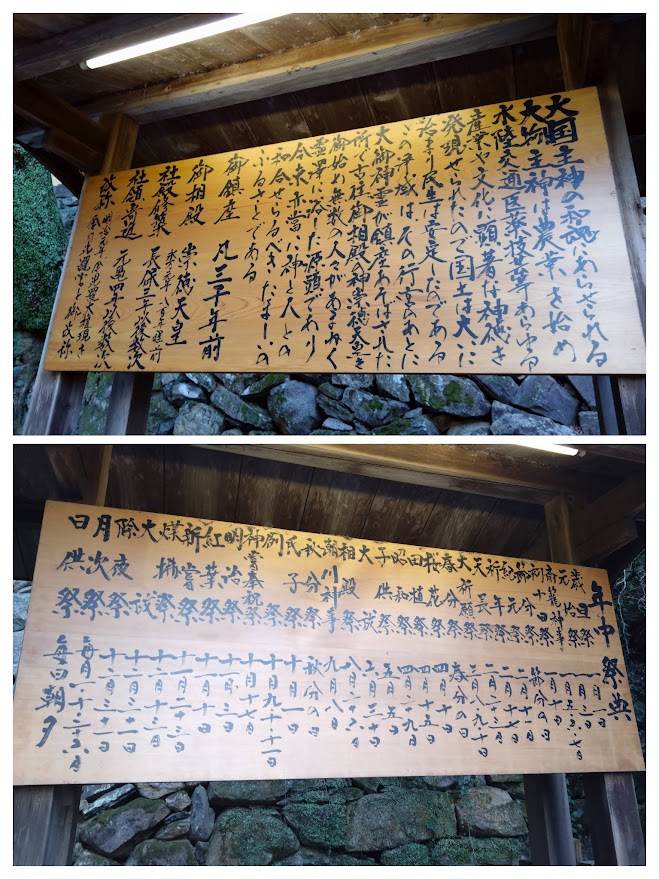 大国主神の和魂にあらせられる
大物主神は農業を始め
水陸交通医薬技芸等あらゆる
産業や文化に顕著な神徳を
発現せられたので国土は大いに
治まり民生は安定したのである
この浄域はその行宮のあとに
大御神霊が鎮座あそばされた
所で古往御相殿の神崇徳天皇を
御始め無数の人々があまねく
霊華に浴した源頭であり
今来亦当に神と人との
和合せらるべきたましいの
ふるさとである
御鎮座 凡三千年前
御相殿 崇徳天皇 八百年程前
社殿修築 長保三年以後数次
社領寄進 元亀四年以後数次
改称 明治元年 金毘羅大権現を
金刀比羅宮と御改称
年中祭典
歳旦祭 一月一日
元始祭 一月三日
斎籠神事 一月五・六・七日
初十日祭 一月十日
節分祭 節分の日
紀元祭 二月十一日
祈年祭 二月十七日
天長祭
大祈願祭 三月八・九・十日
春分祭 春分の日
桜花祭 四月十日
田植祭 四月十五日
昭和祭
子供祭 五月五日
大祓 六月三十日
相殿祭 八月二十六日
潮川神事 九月八日
秋分祭 秋分の日
氏子祭 十月一日
例祭 十月九・十・十一日
神嘗奉祝祭 十月十七日
明治祭 十一月三日
紅葉祭 十一月十日
新嘗祭 十一月二十三日
煤掃 十二月十三日
大祓 十二月三十一日
除夜祭 十二月三十一日
月次祭 毎月一・十・二十六日
日供祭 毎日朝夕